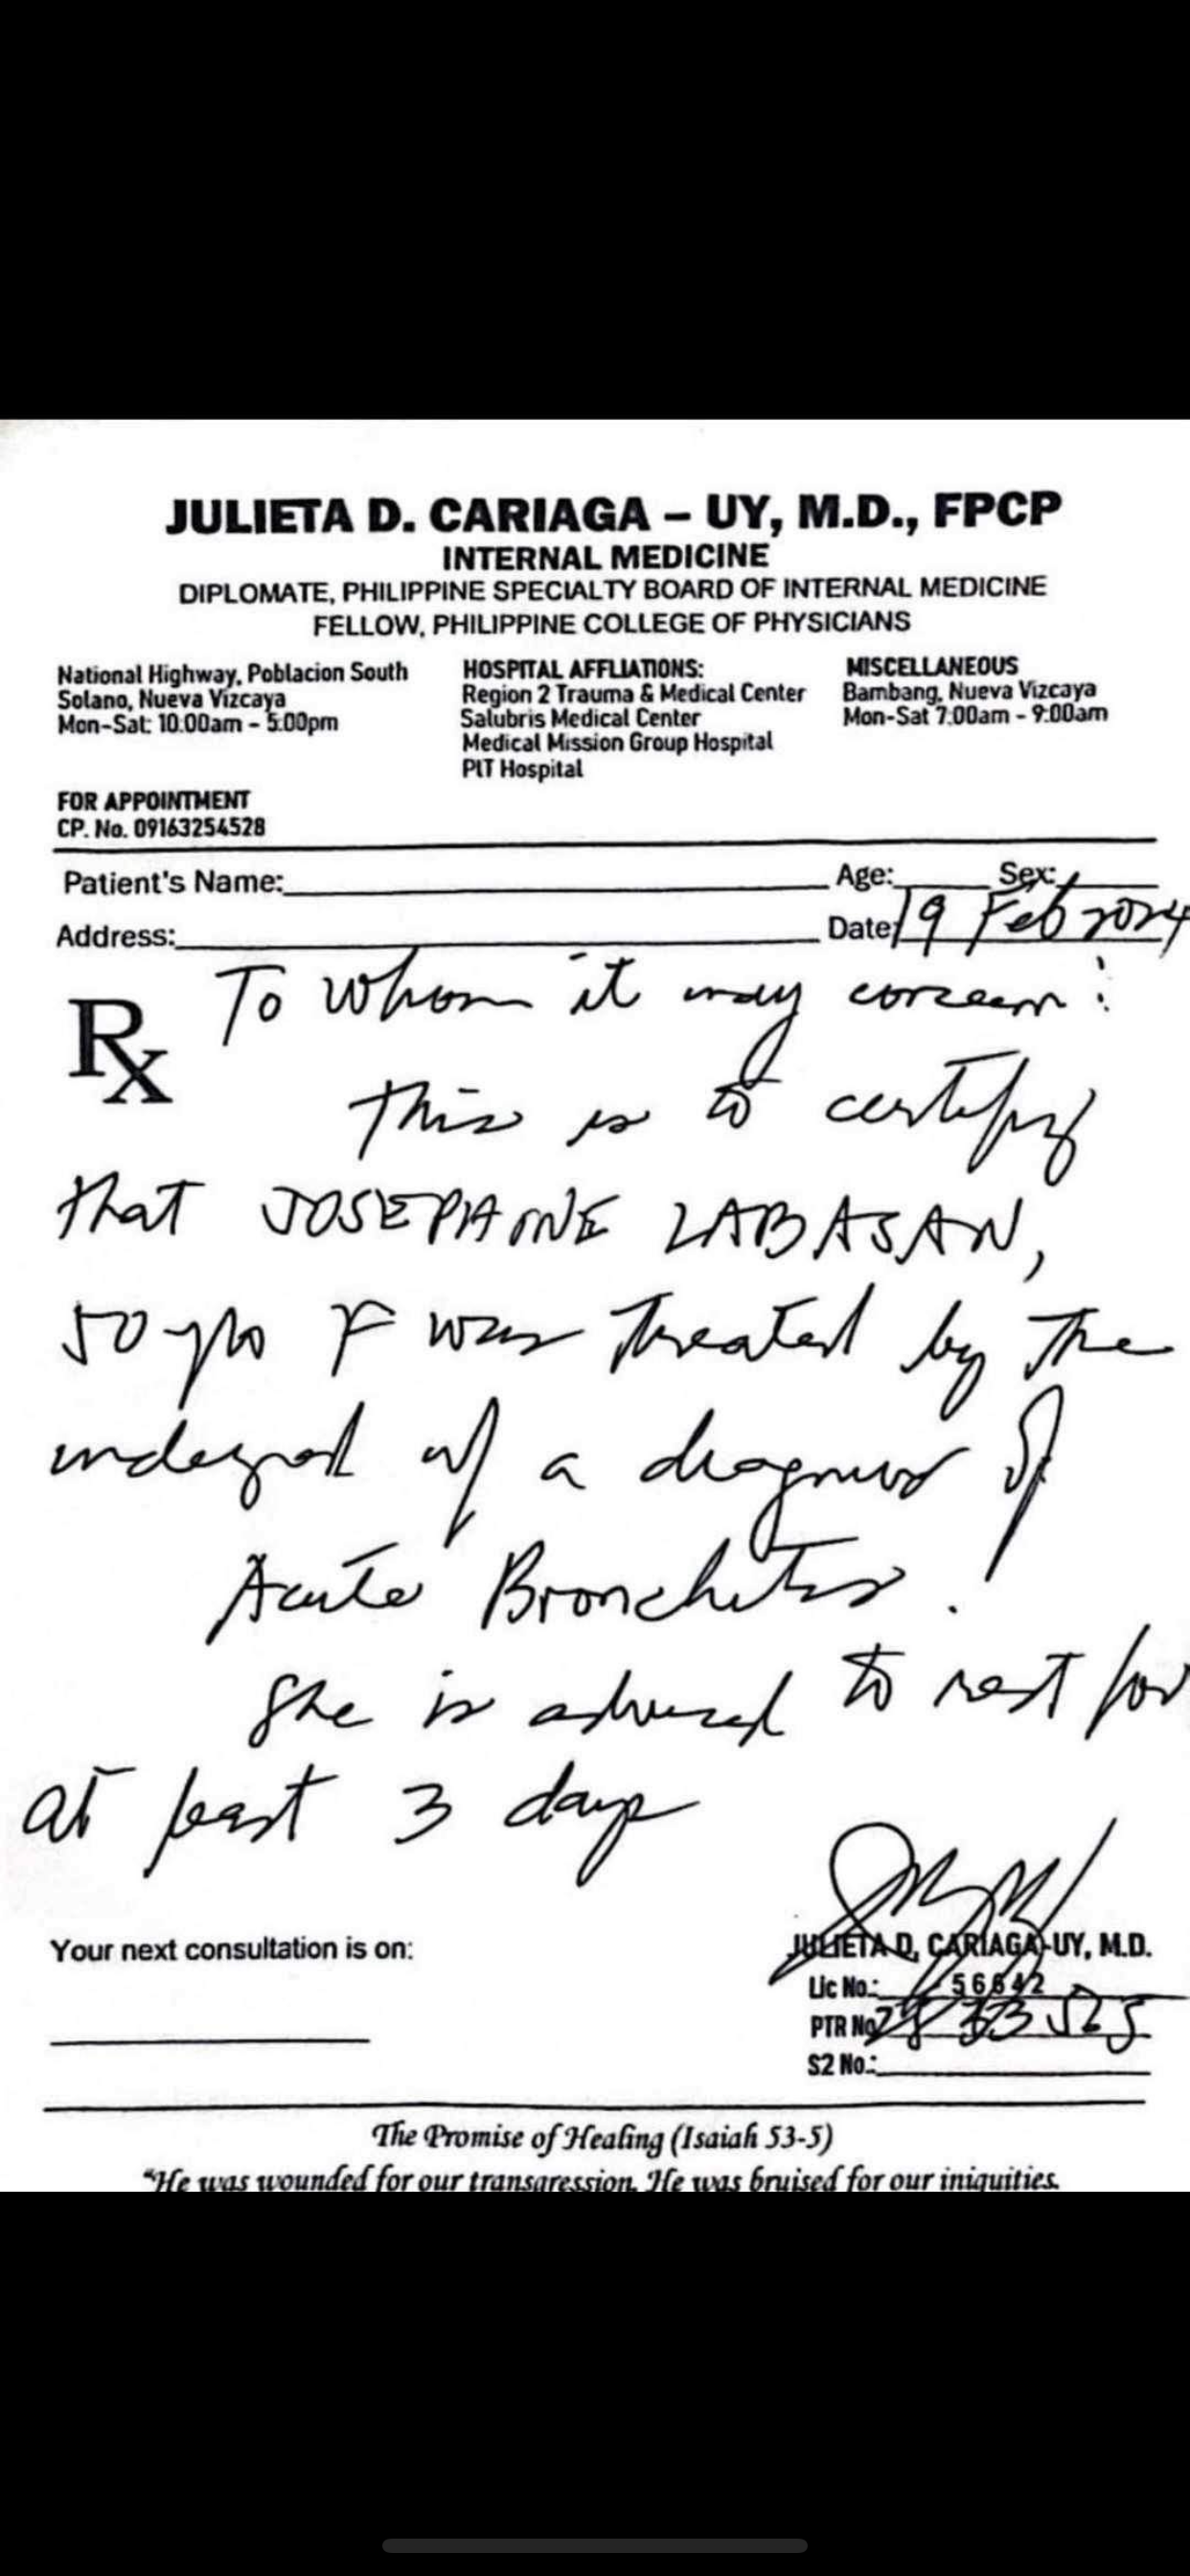 JULIETA D. CARIAGA – UY, M.D., FPCP
INTERNAL MEDICINE
DIPLOMATE, PHILIPPINE SPECIALTY BOARD OF INTERNAL MEDICINE
FELLOW, PHILIPPINE COLLEGE OF PHYSICIANS
National Highway, Poblacion South
Solano, Nueva Vizcaya
Mon-Sat: 10.00am - 5:00pm
HOSPITAL AFFLIATIONS:
Region 2 Trauma & Medical Center
Salubris Medical Center
Medical Mission Group Hospital
PLT Hospital
MISCELLANEOUS
Bambang, Nueva Vizcaya
Mon-Sat 7:00am - 9:00am
FOR APPOINTMENT
CP. No. 09163254528
Patient's Name: Age: Sex:
Address: Date: 19 Feb 2024
Rx To whom it may concern:
This is to certify
that JOSEPHINE LABASAN,
50 y/o F was treated by the
undersigned w/ a diagnosis of
Acute Bronchitis.
She is advised to rest for
at least 3 days
Your next consultation is on:
JULIETA D. CARIAGA-UY, M.D.
Lic No.: 56642
PTR No
S2 No.:
The Promise of Healing (Isaiah 53-5)
"He was wounded for our transgression, He was bruised for our iniquities.